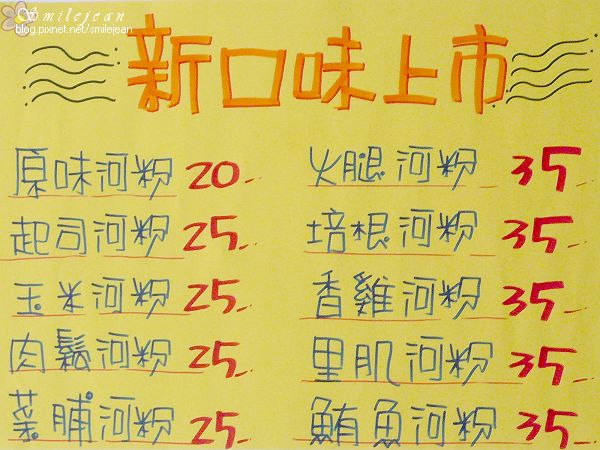 Smilejean
blog.pixnet.net/smilejean
新口味上市
原味河粉 20
起司河粉 25
玉米河粉 25
肉鬆河粉 25
菜脯河粉 25
火腿河粉 35
培根河粉 35
香雞河粉 35
里肌河粉 35
鮪魚河粉 35